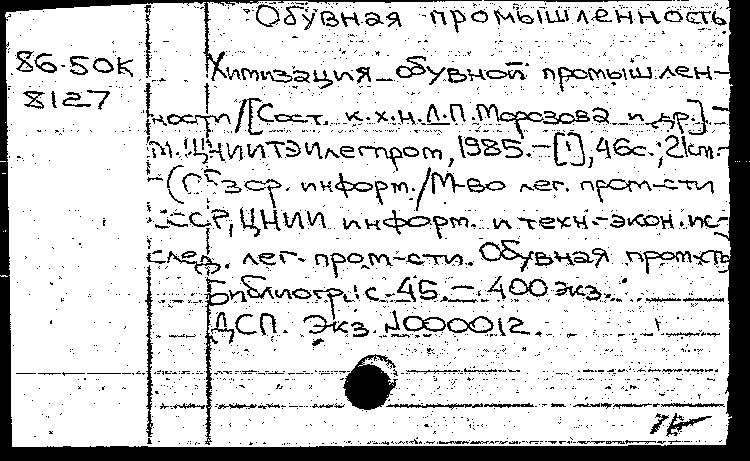 Обувная промышленность
86-50К
8127
Химизация обувной промышлен-
ности/[Сост. к.х.н. Л.П. Морозова и др.].-
М.:ЦНИИТЭИлегпром, 1985.-[1], 46с.; 21см.-
-(Обзор. информ./М-во лег. пром-сти
СССР, ЦНИИ информ. и техн.-экон. ис-
след. лег. пром-сти. Обувная пром-сть)
Библиогр.: с. 45. - 400 экз.
ДСП. Экз. №000012.